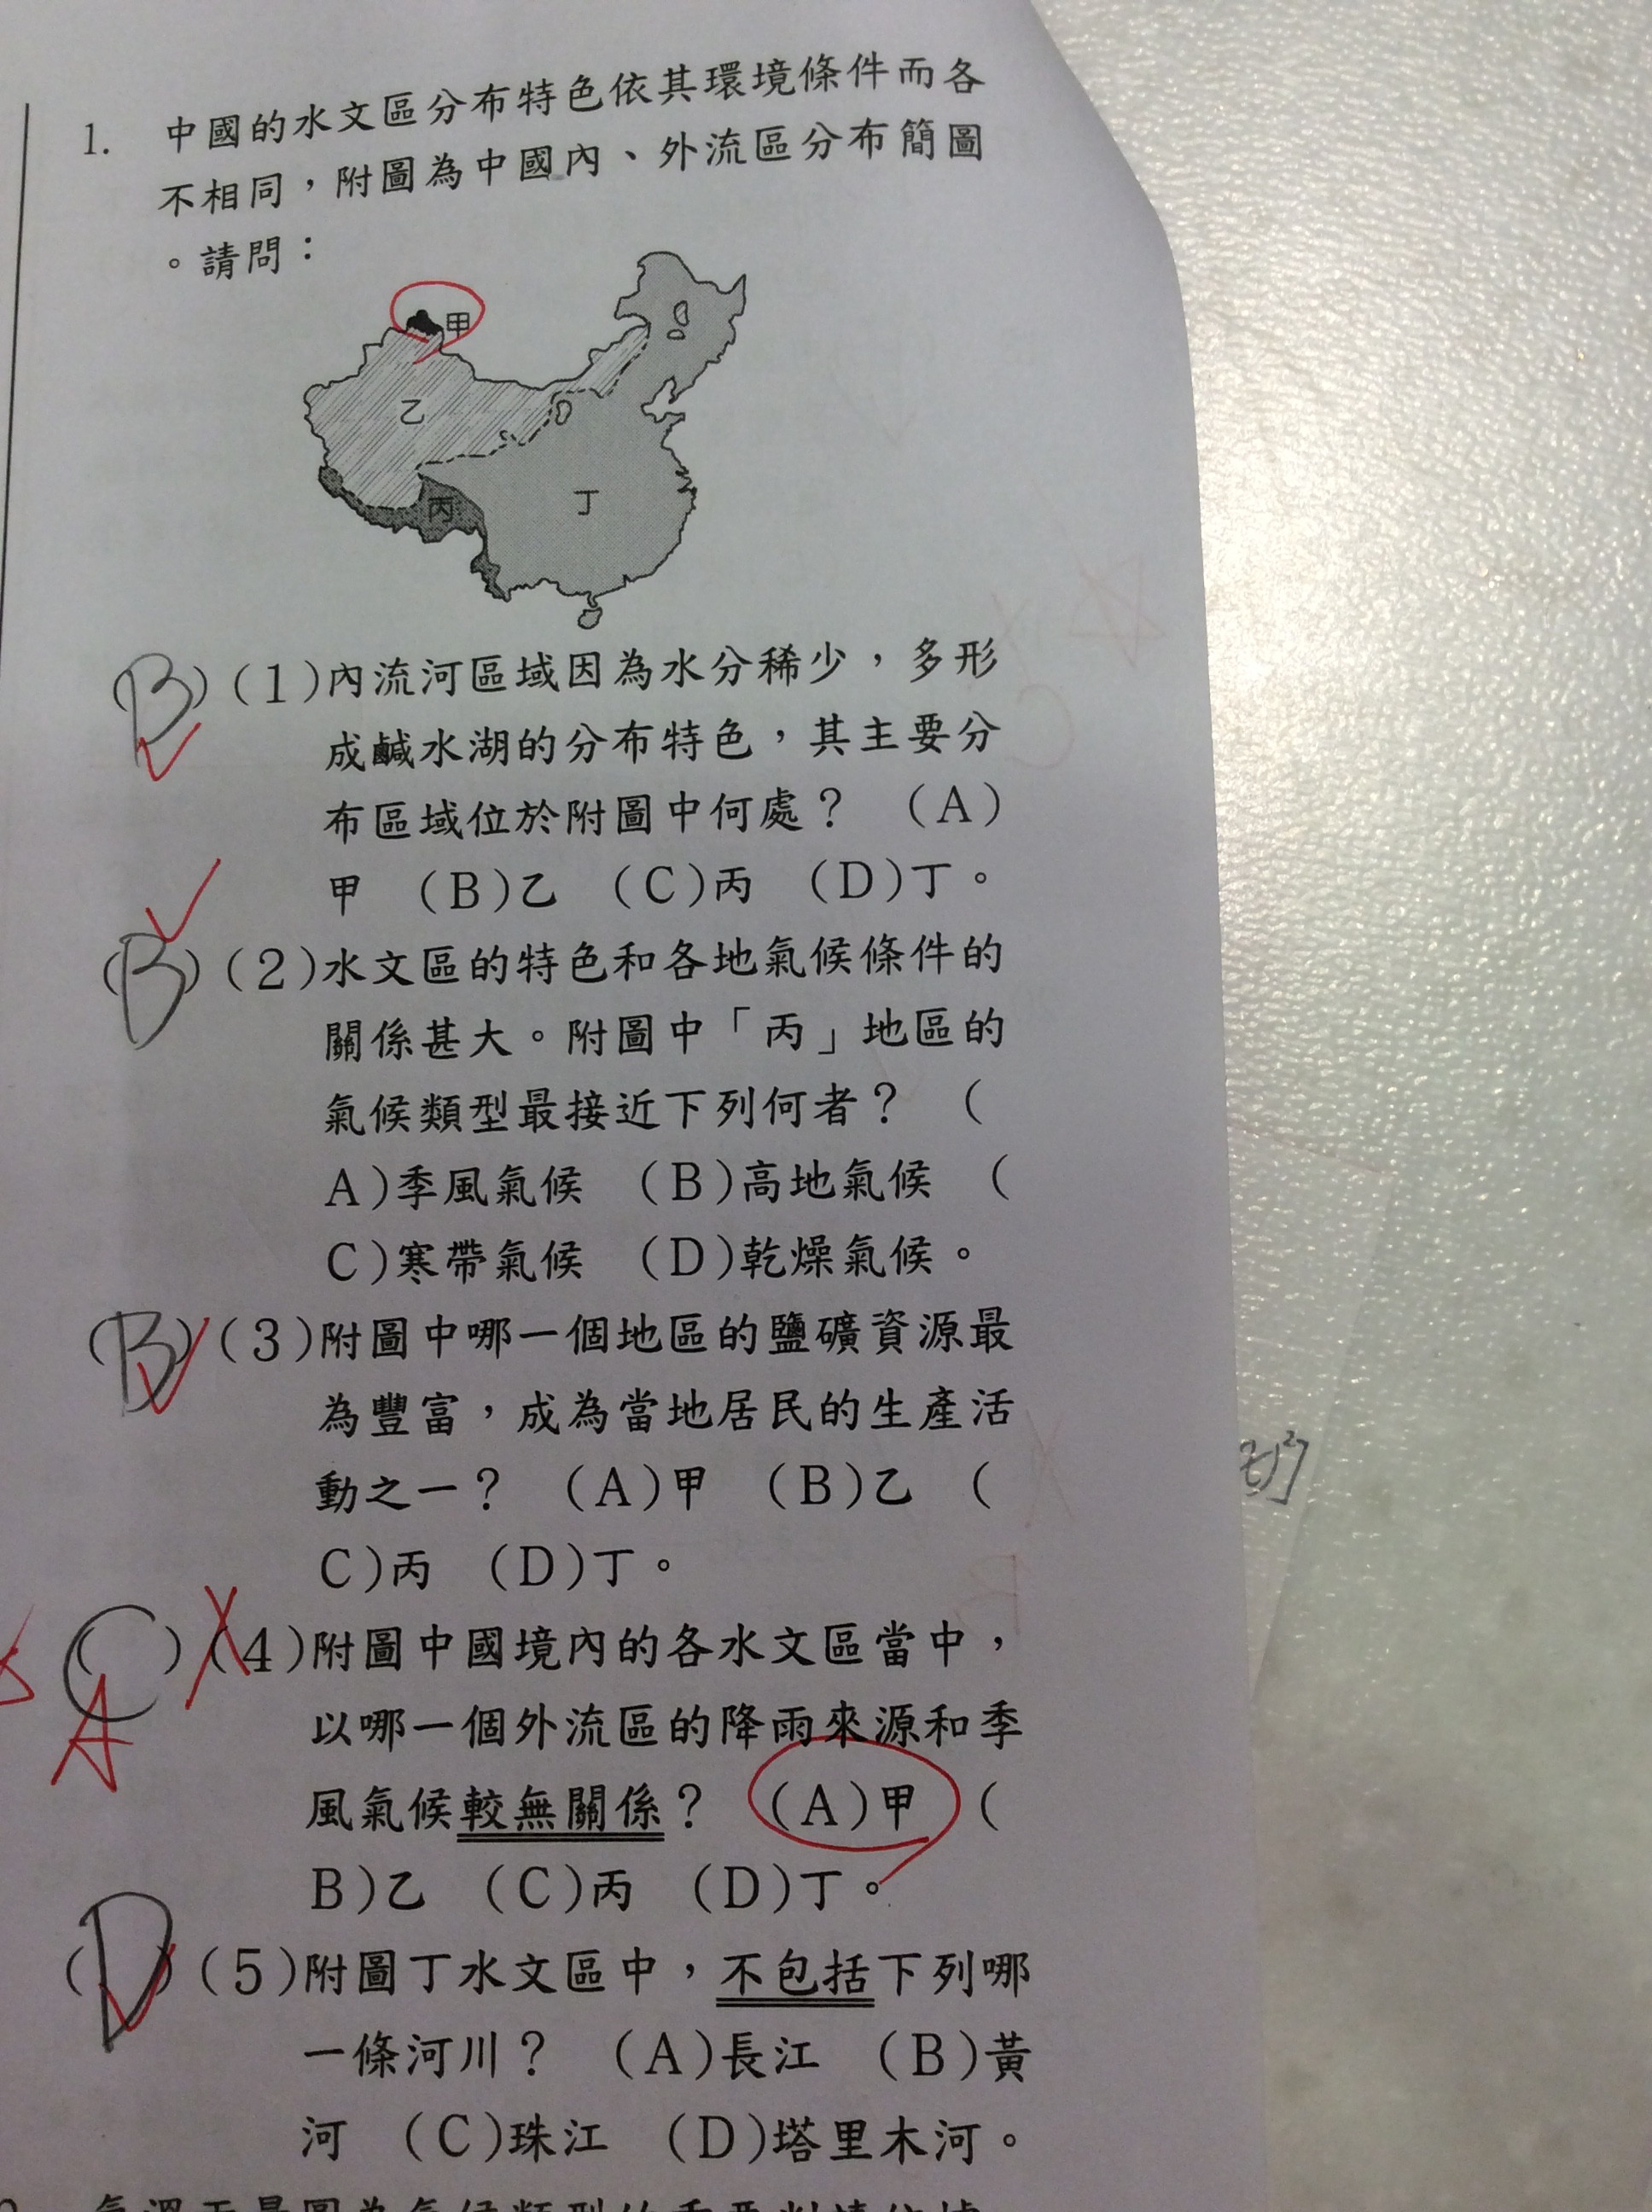 1. 中國的水文區分布特色依其環境條件而各
不相同，附圖為中國內、外流區分布簡圖
。請問：
甲
乙
丙
丁
(B)(1)內流河區域因為水分稀少，多形
成鹹水湖的分布特色，其主要分
布區域位於附圖中何處？ (A)
甲 (B)乙 (C)丙 (D)丁。
(B)(2)水文區的特色和各地氣候條件的
關係甚大。附圖中「丙」地區的
氣候類型最接近下列何者？ (
A)季風氣候 (B)高地氣候 (
C)寒帶氣候 (D)乾燥氣候。
(B)(3)附圖中哪一個地區的鹽礦資源最
為豐富，成為當地居民的生產活
動之一？ (A)甲 (B)乙 (
C)丙 (D)丁。
(C)(4)附圖中國境內的各水文區當中，
A
以哪一個外流區的降雨來源和季
風氣候較無關係？ (A)甲 (
B)乙 (C)丙 (D)丁。
(D)(5)附圖丁水文區中，不包括下列哪
一條河川？ (A)長江 (B)黃
河 (C)珠江 (D)塔里木河。